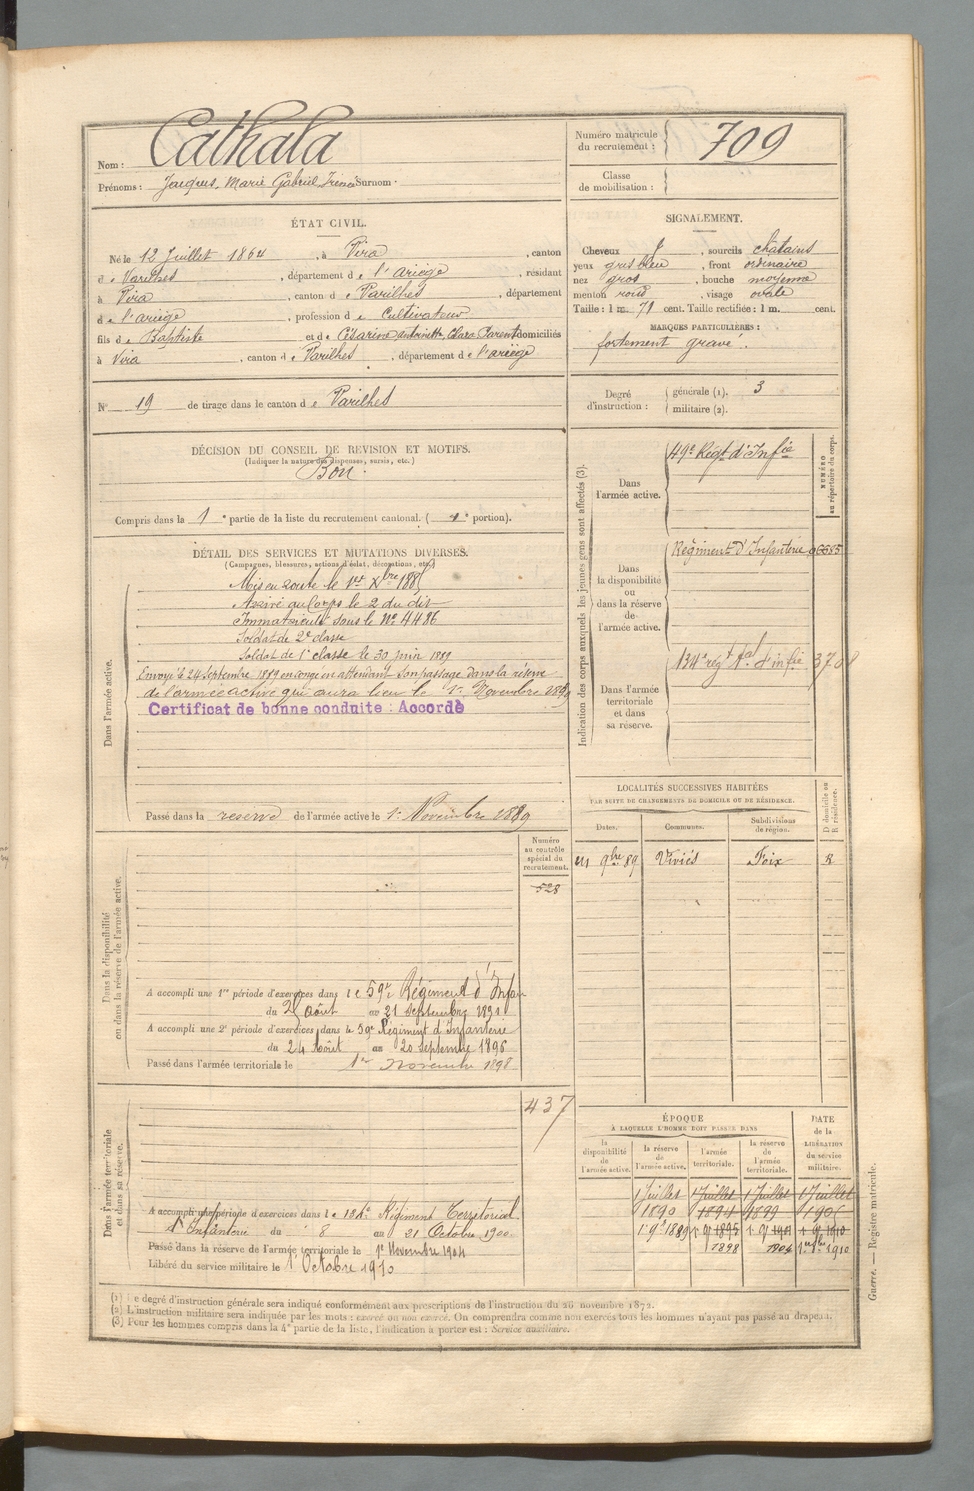 Nom : Cathala
Prénoms : Jacques, Marie Gabriel Irénée Surnom
Numéro matricule du recrutement : 709
Classe de mobilisation :
ÉTAT CIVIL.
Né le 12 Juillet 1864, à Vira, canton
de Varilhes, département de l'Ariège, résidant
à Vira, canton de Varilhes, département
de l'ariège, profession de Cultivateur
fils de Baptiste et de Césarine Antoinette Clara Parent domiciliés
à Vira, canton de Varilhes, département de l'ariège
SIGNALEMENT.
Cheveux, sourcils châtains
yeux gris bleu, front ordinaire
nez gros, bouche moyenne
menton rond, visage ovale
Taille : 1 m. 71 cent. Taille rectifiée : 1 m. cent.
MARQUES PARTICULIÈRES :
fortement gravé.
N° 19 de tirage dans le canton de Varilhes
Degré d'instruction : générale (1). 3
militaire (2).
DÉCISION DU CONSEIL DE REVISION ET MOTIFS.
(Indiquer la nature des dispenses, sursis, etc.)
Bon
Compris dans la 1e partie de la liste du recrutement cantonal. ( 1e portion).
DÉTAIL DES SERVICES ET MUTATIONS DIVERSES.
(Campagnes, blessures, actions d'éclat, décorations, etc.)
Dans l'armée active.
Mis en route le 1er Xbre 1885
Arrivé au Corps le 2 du dit
Immatriculé sous le N° 4486
Soldat de 2e classe
Soldat de 1e classe le 30 juin 1889
Envoyé le 24 Septembre 1889 en congé en attendant son passage dans la réserve
de l'armée active qui aura lieu le 1er Novembre 1889
Certificat de bonne conduite : Accordé
Passé dans la reserve de l'armée active le 1er Novembre 1889
Indication des corps auxquels les jeunes gens sont affectés (3).
NUMÉRO au répertoire du corps.
Dans l'armée active.
49e Régt d'Infie
Dans la disponibilité ou dans la réserve de l'armée active.
Régiment d'Infanterie
Dans l'armée territoriale et dans sa réserve.
134e régt tal d'infie 3708
LOCALITÉS SUCCESSIVES HABITÉES
PAR SUITE DE CHANGEMENTS DE DOMICILE OU DE RÉSIDENCE.
Dates. Communes. Subdivisions de région. D domicile ou R résidence.
9bre 89 Viviès Foix R
Dans la disponibilité ou dans la réserve de l'armée active.
Numéro au contrôle spécial du recrutement.
528
A accompli une 1re période d'exercices dans le 59e Régiment d'Infan
du 25 août au 21 Septembre 1891
A accompli une 2e période d'exercices dans le 59e Régiment d'Infanterie
du 24 Août au 20 Septembre 1896
Passé dans l'armée territoriale le 1er Novembre 1898
Dans l'armée territoriale et dans sa réserve.
437
A accompli une période d'exercices dans le 134e Régiment Territorial
d'Infanterie du 8 au 21 Octobre 1900
Passé dans la réserve de l'armée territoriale le 1er Novembre 1904
Libéré du service militaire le 1er Octobre 1910
ÉPOQUE
À LAQUELLE L'HOMME DOIT PASSER DANS
DATE de la LIBÉRATION du service militaire.
la disponibilité de l'armée active. la réserve de l'armée active. l'armée territoriale. la réserve de l'armée territoriale.
1 Juillet 1 Juillet 1 Juillet 1 Juillet
1890 1894 1899 1905
1er 9bre 1889 1er 9 1895 1er 9 1901 1er 9 1910
1898 1904 1er 8bre 1910
(1) Le degré d'instruction générale sera indiqué conformément aux prescriptions de l'instruction du 26 novembre 1872.
(2) L'instruction militaire sera indiquée par les mots : exercé ou non exercé. On comprendra comme non exercés tous les hommes n'ayant pas passé au drapeau.
(3) Pour les hommes compris dans la 4e partie de la liste, l'indication à porter est : Service auxiliaire.
Guerre. — Registre matricule.